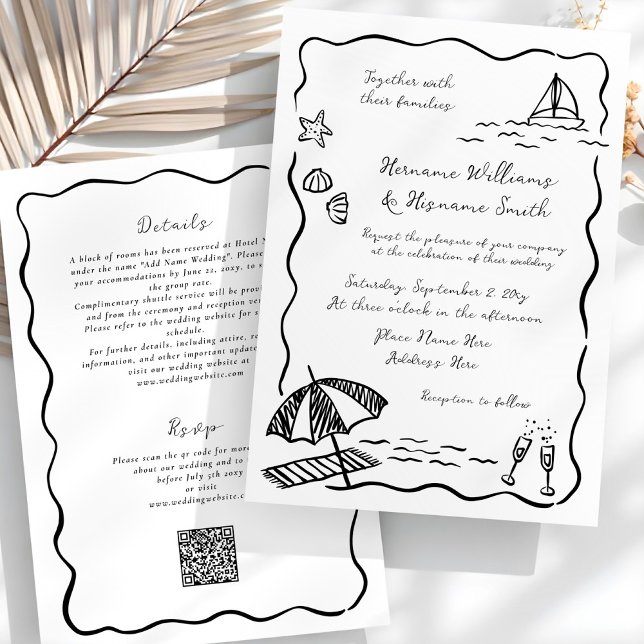 Together with
their families
Hername Williams
& Hisname Smith
Request the pleasure of your company
at the celebration of their wedding
Saturday. September 2. 20xy
At three o'clock in the afternoon
Place Name Here
Address Here
Reception to follow
Details
A block of rooms has been reserved at Hotel
under the name "Add Name Wedding". Please
your accommodations by June 22, 20xy, to
the group rate.
Complimentary shuttle service will be
and from the ceremony and reception
Please refer to the wedding website for
schedule.
For further details, including attire,
information, and other important
visit our wedding website at
www.weddingwebsite.com
Rsvp
Please scan the qr code for more
about our wedding and to
before July 5th 20xy
or visit
www.weddingwebsite.com